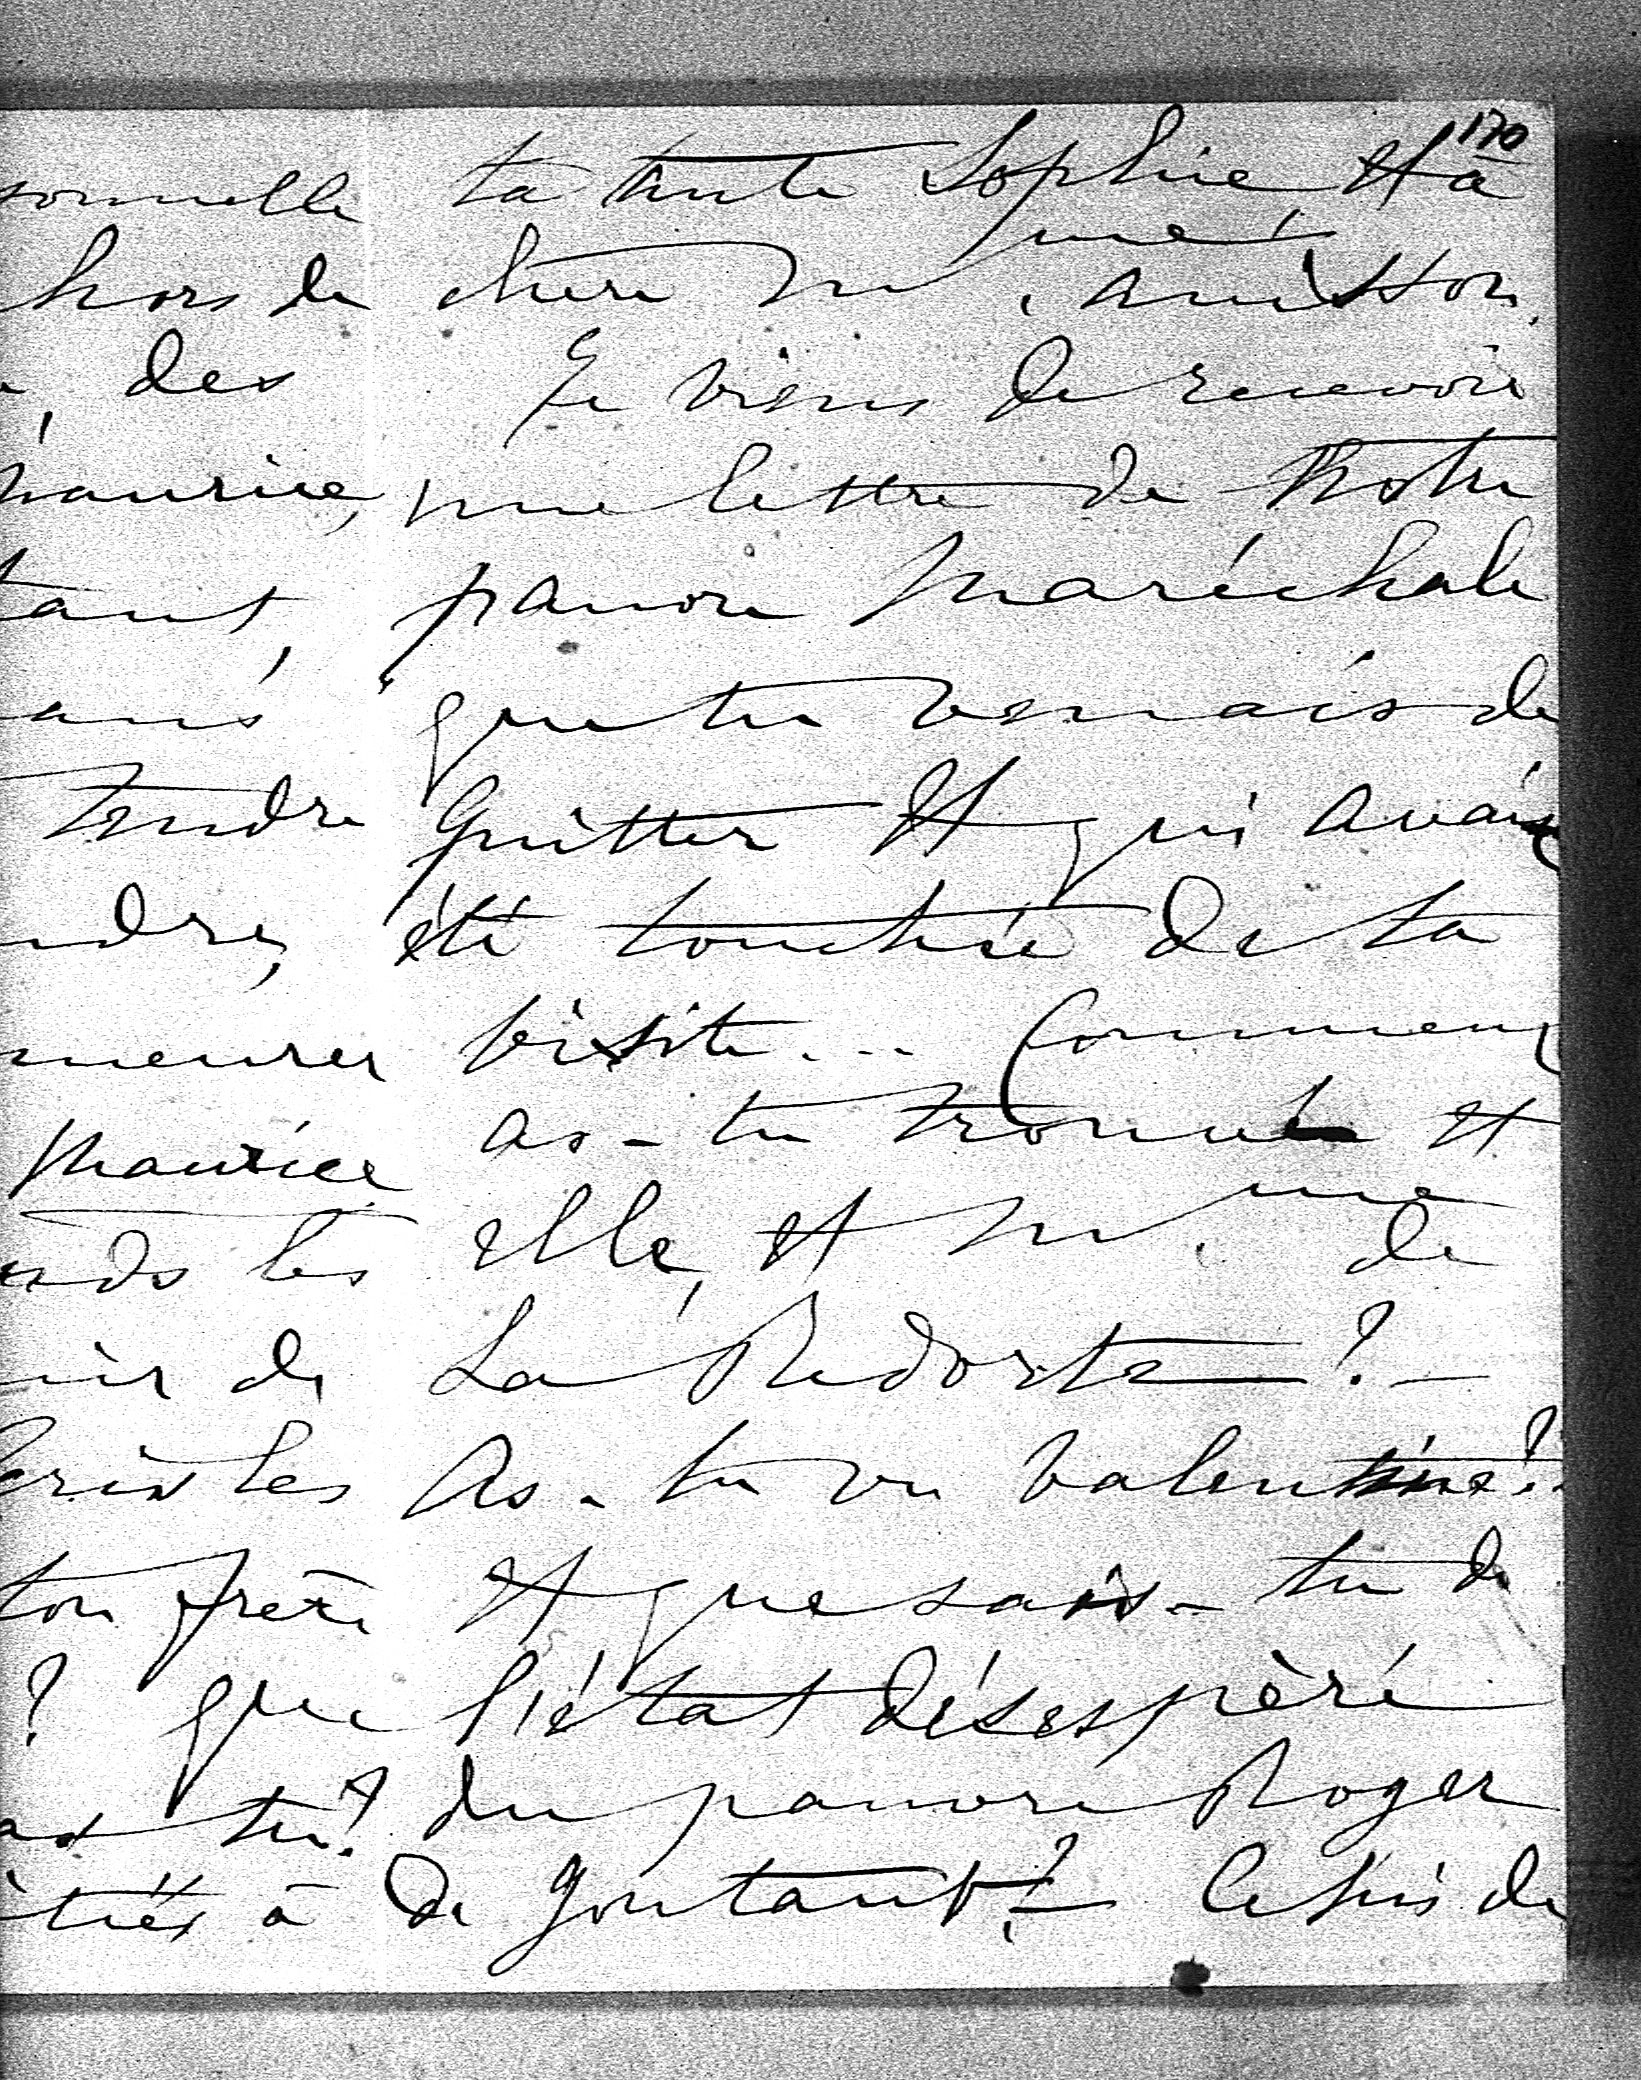 170
ta tante Sophie et à
chère Mme. Anisson.
Je viens de recevoir
une lettre de Notre
pauvre Maréchale
que tu venais de
quitter et qui avait
été touchée de ta
visite... Comment
as-tu trouvé et
elle, et Mme. de
La Redorte ? –
As-tu vu Valentine ?
et que sais-tu de
l'état désespéré
du pauvre Roger
de Gontaut ? –
sonnelle
hors de
des
Maurice,
tant,
tendre
meurer
Maurice
les
de
les
ton frère
? que
as tu ?
tiés à